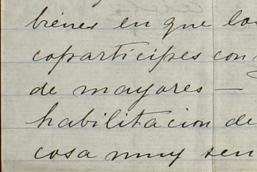 bienes en que los
coparticipes con
de mayores —
habilitacion de
cosa muy sen